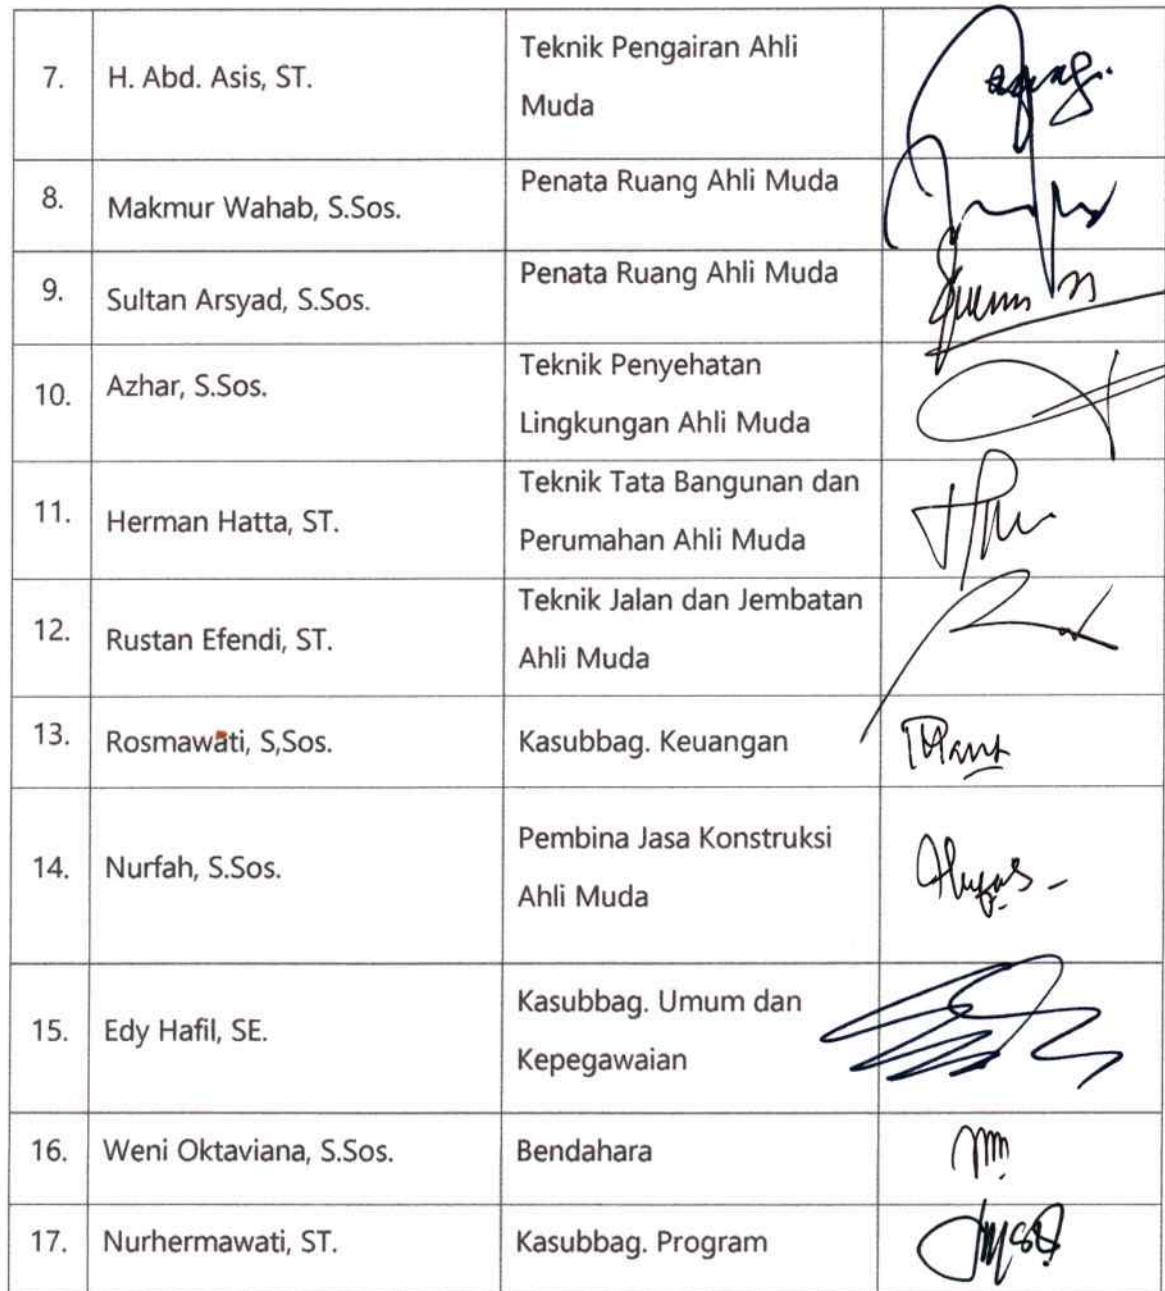 7. H. Abd. Asis, ST. Teknik Pengairan Ahli
Muda
8. Makmur Wahab, S.Sos. Penata Ruang Ahli Muda
9. Sultan Arsyad, S.Sos. Penata Ruang Ahli Muda
10. Azhar, S.Sos. Teknik Penyehatan
Lingkungan Ahli Muda
11. Herman Hatta, ST. Teknik Tata Bangunan dan
Perumahan Ahli Muda
12. Rustan Efendi, ST. Teknik Jalan dan Jembatan
Ahli Muda
13. Rosmawati, S,Sos. Kasubbag. Keuangan
14. Nurfah, S.Sos. Pembina Jasa Konstruksi
Ahli Muda
15. Edy Hafil, SE. Kasubbag. Umum dan
Kepegawaian
16. Weni Oktaviana, S.Sos. Bendahara
17. Nurhermawati, ST. Kasubbag. Program